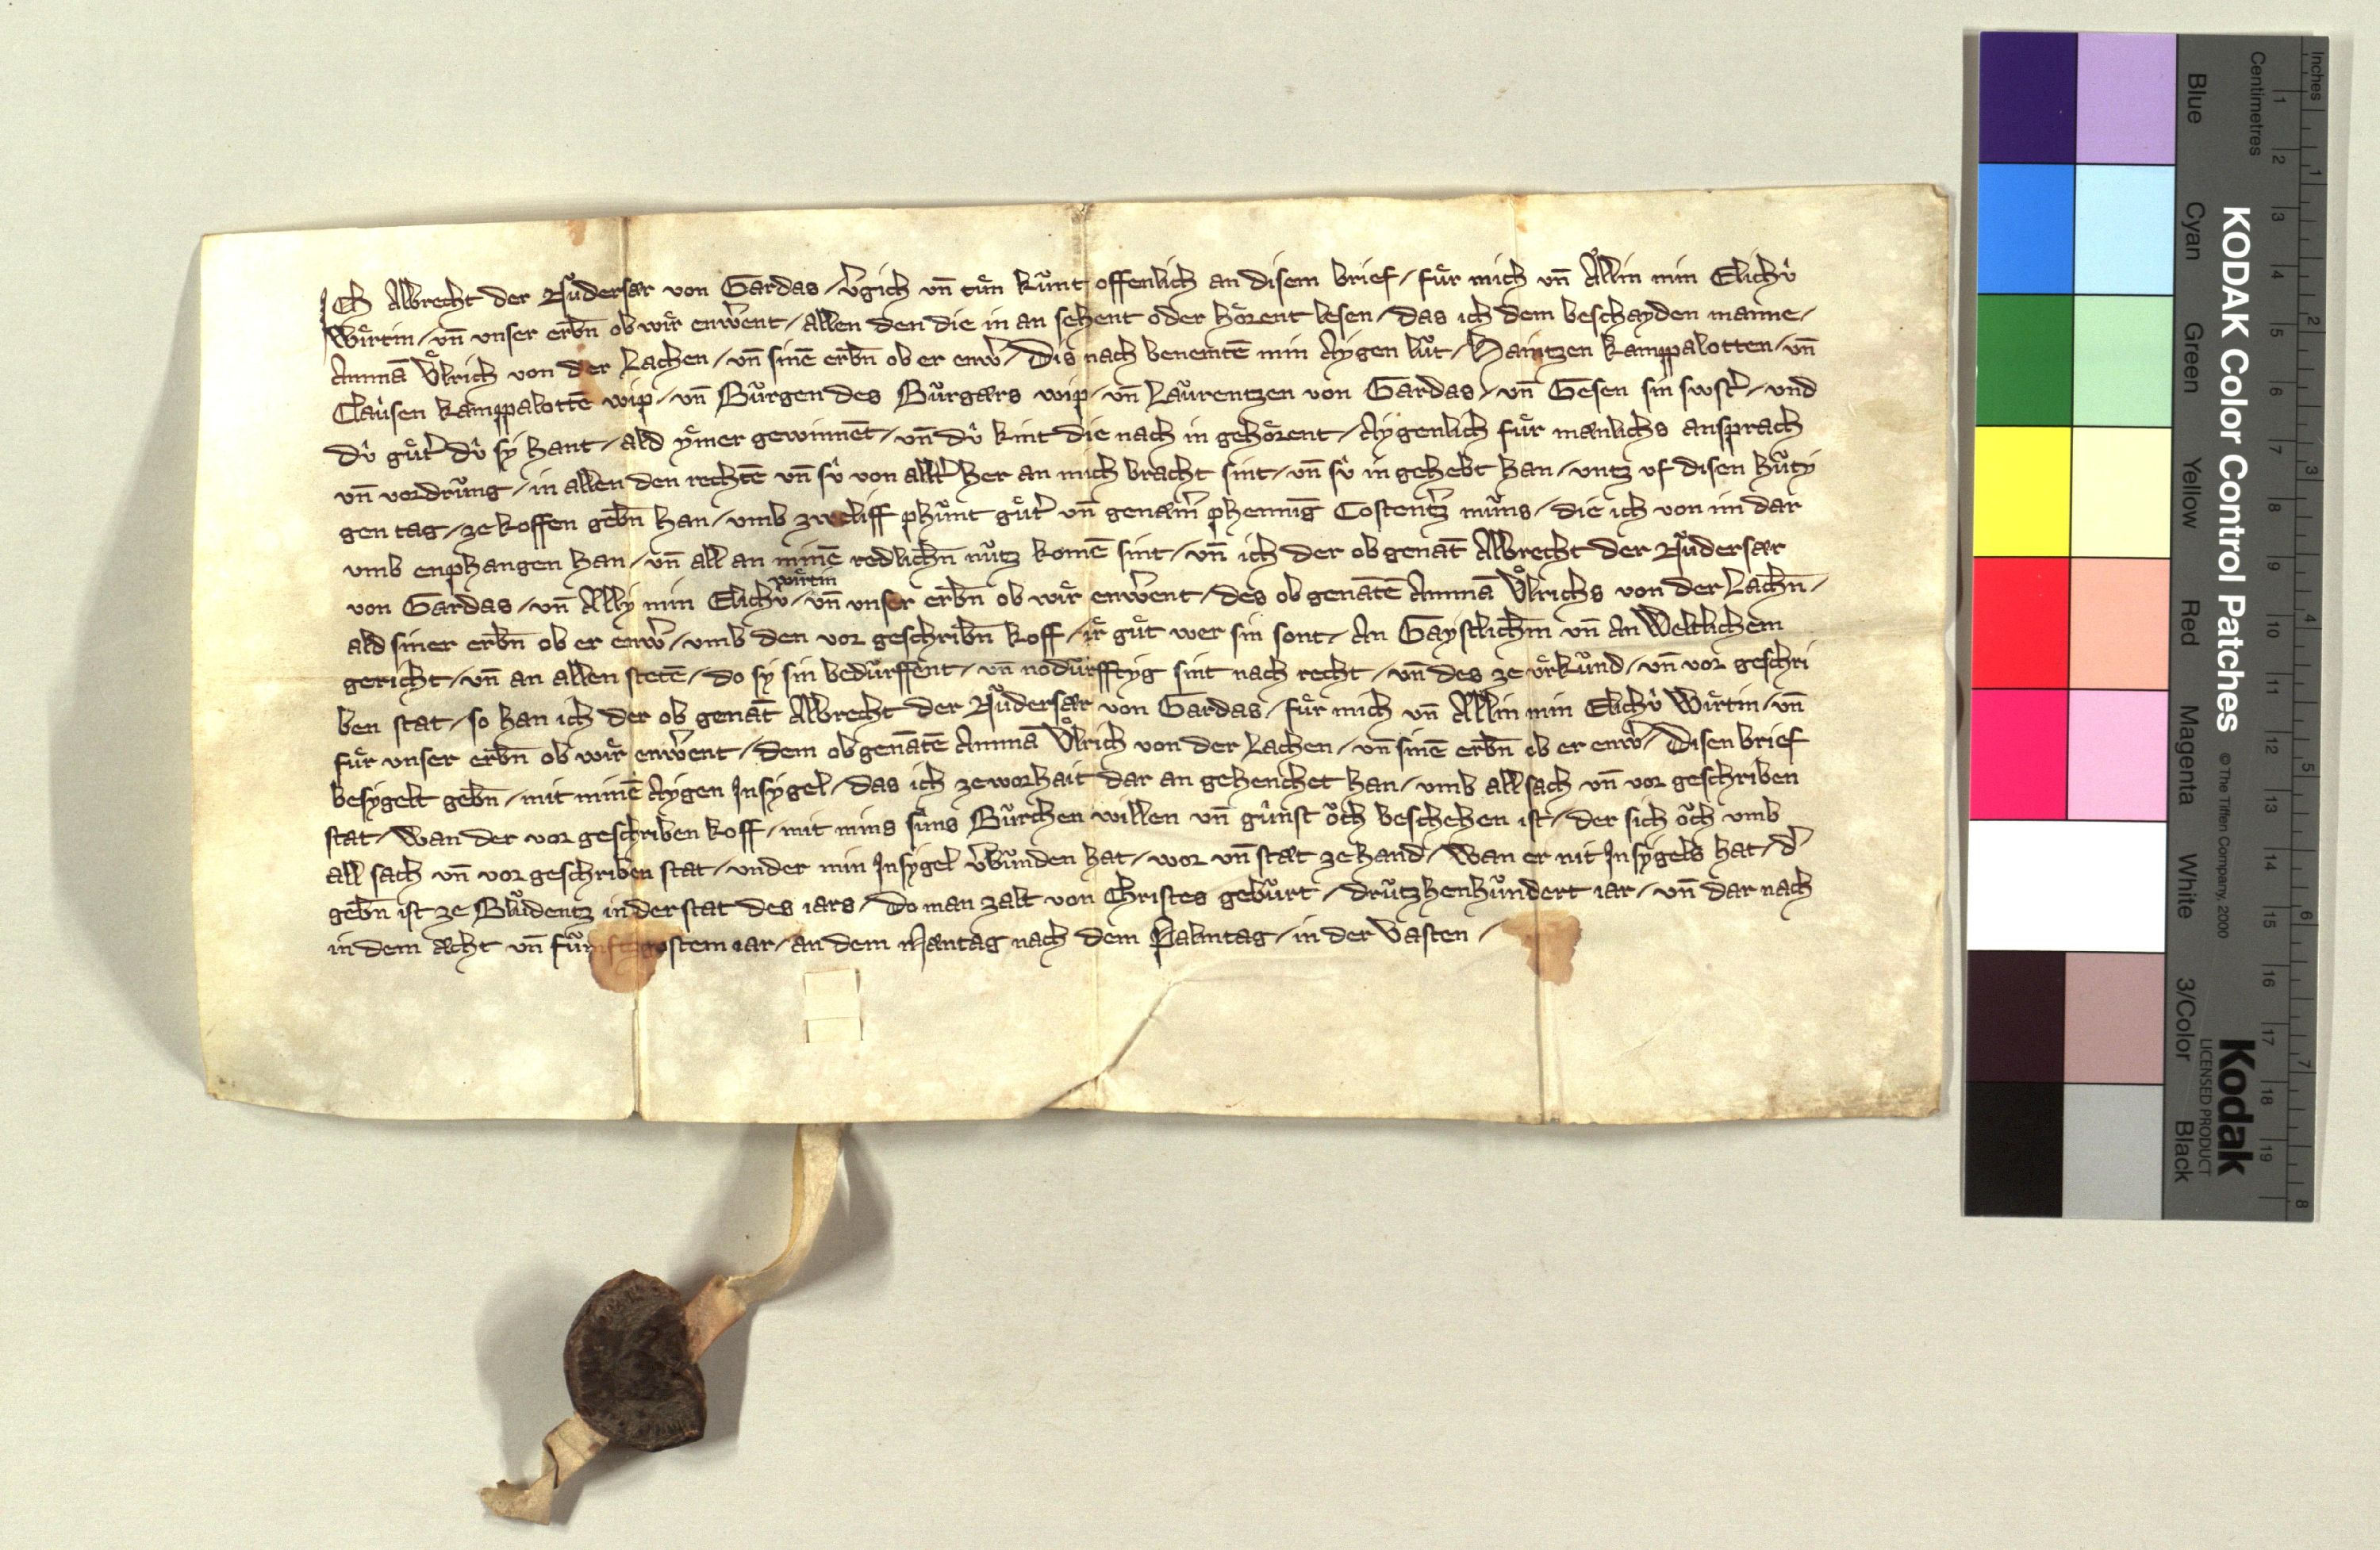 ICh Albrecht der Rüdersar von Gardas / v͛gich vn̄ tůn kůnt offenlich an disem brief / fúr mich vn̄ Ällin min Elichv̂
Wirtin / vn̄ vnser erbn̄ ob wir enwe͛ent / allen den die in an sehent oder hörent lesen / das ich dem beschayden manne /
Ammā Ůlrich von der Lachen / vn̄ sinē erbn̄ ob er enwe͛ / Dis nach benemtē min Aygen lút / Haintzen kamppalotten / vn̄
Clausen kamppalottē wip / vn̄ Bürgen des Bürgers wip / vn̄ Laurentzen von Gardas / vn̄ Gesen sin swst͛ / vnd
dv̂ gůt͛ dv̂ sy hant / ald ymer gewinnēt / vn̄ dv̂ kint die nach in gehörent / Aygenlich fúr manlichs ansprach
vn̄ vordrung / in allen den rechtē vn̄ sv̂ von allt͛ her an mich bracht sint / vn̄ sv̂ in gehebt han / vntz vf disen húty
gen tag / ze koffen gebn̄ han / vmb zweliff phunt gůt͛ vn̄ genäm͛ phennig Costentz͛ múns / die ich von im dar
vmb enphangen han / vn̄ all an minē redlichn̄ nutz komē sint / vn̄ ich der ob genāt Albrecht der Rüdersar
wirtin
von Gardas / vn̄ Ally min Elichv̂ / vn̄ vnser erbn̄ ob wir enwe͛ent / des ob genātē Ammā Ůlrichs von der Lachn̄ /
ald siner erbn̄ ob er enwe͛ / vmb den vor geschribn̄ koff / ir gůt wer sin sont / An Gaystlichem vn̄ An Weltlichem
gericht / vn̄ an allen stetē / do sy sin bedúrffent / vn̄ nodúrfftyg sint nach recht / vn̄ des ze vrkúnd / vn̄ vor geschri
ben stat / so han ich der ob genāt Albrecht der Rüdersar von Gardas / fúr mich vn̄ Allin min Elichv̂ Wirtin / vn̄
fúr vnser erbn̄ ob wir enwe͛ent / dem ob genātē Ammā Ůlrich von der Lachen / vn̄ sinē erbn̄ ob er enwe͛ / Disen brief
besygelt gebn̄ / mit minē Aygen Insygel / das ich ze worhait dar an gehenchet han / vmb all sach vn̄ vor geschriben
stat / Wan der vor geschriben koff / mit mins suns Bürchen willen vn̄ gunst öch beschehen ist / der sich öch vmb
all sach vn̄ vor geschriben stat / vnder min Insygel v͛bunden hat / wor vn̄ stät ze hand / Wan er nit Insygels hat / d͛
gebn̄ ist ze Bludentz in der stat des iars / Do man zalt von Christes geburt / drutzhenhundert iar / vn̄ dar nach
in dem acht vn̄ fúnftzgostem iar / an dem Mantag nach dem Palmtag / in der Vasten /
KODAK Color Control Patches
© The Tiffen Company, 2000
Kodak
LICENSED PRODUCT
Inches
1 2 3 4 5 6 7 8
Centimetres
1 2 3 4 5 6 7 8 9 10 11 12 13 14 15 16 17 18 19
Blue
Cyan
Green
Yellow
Red
Magenta
White
3/Color
Black